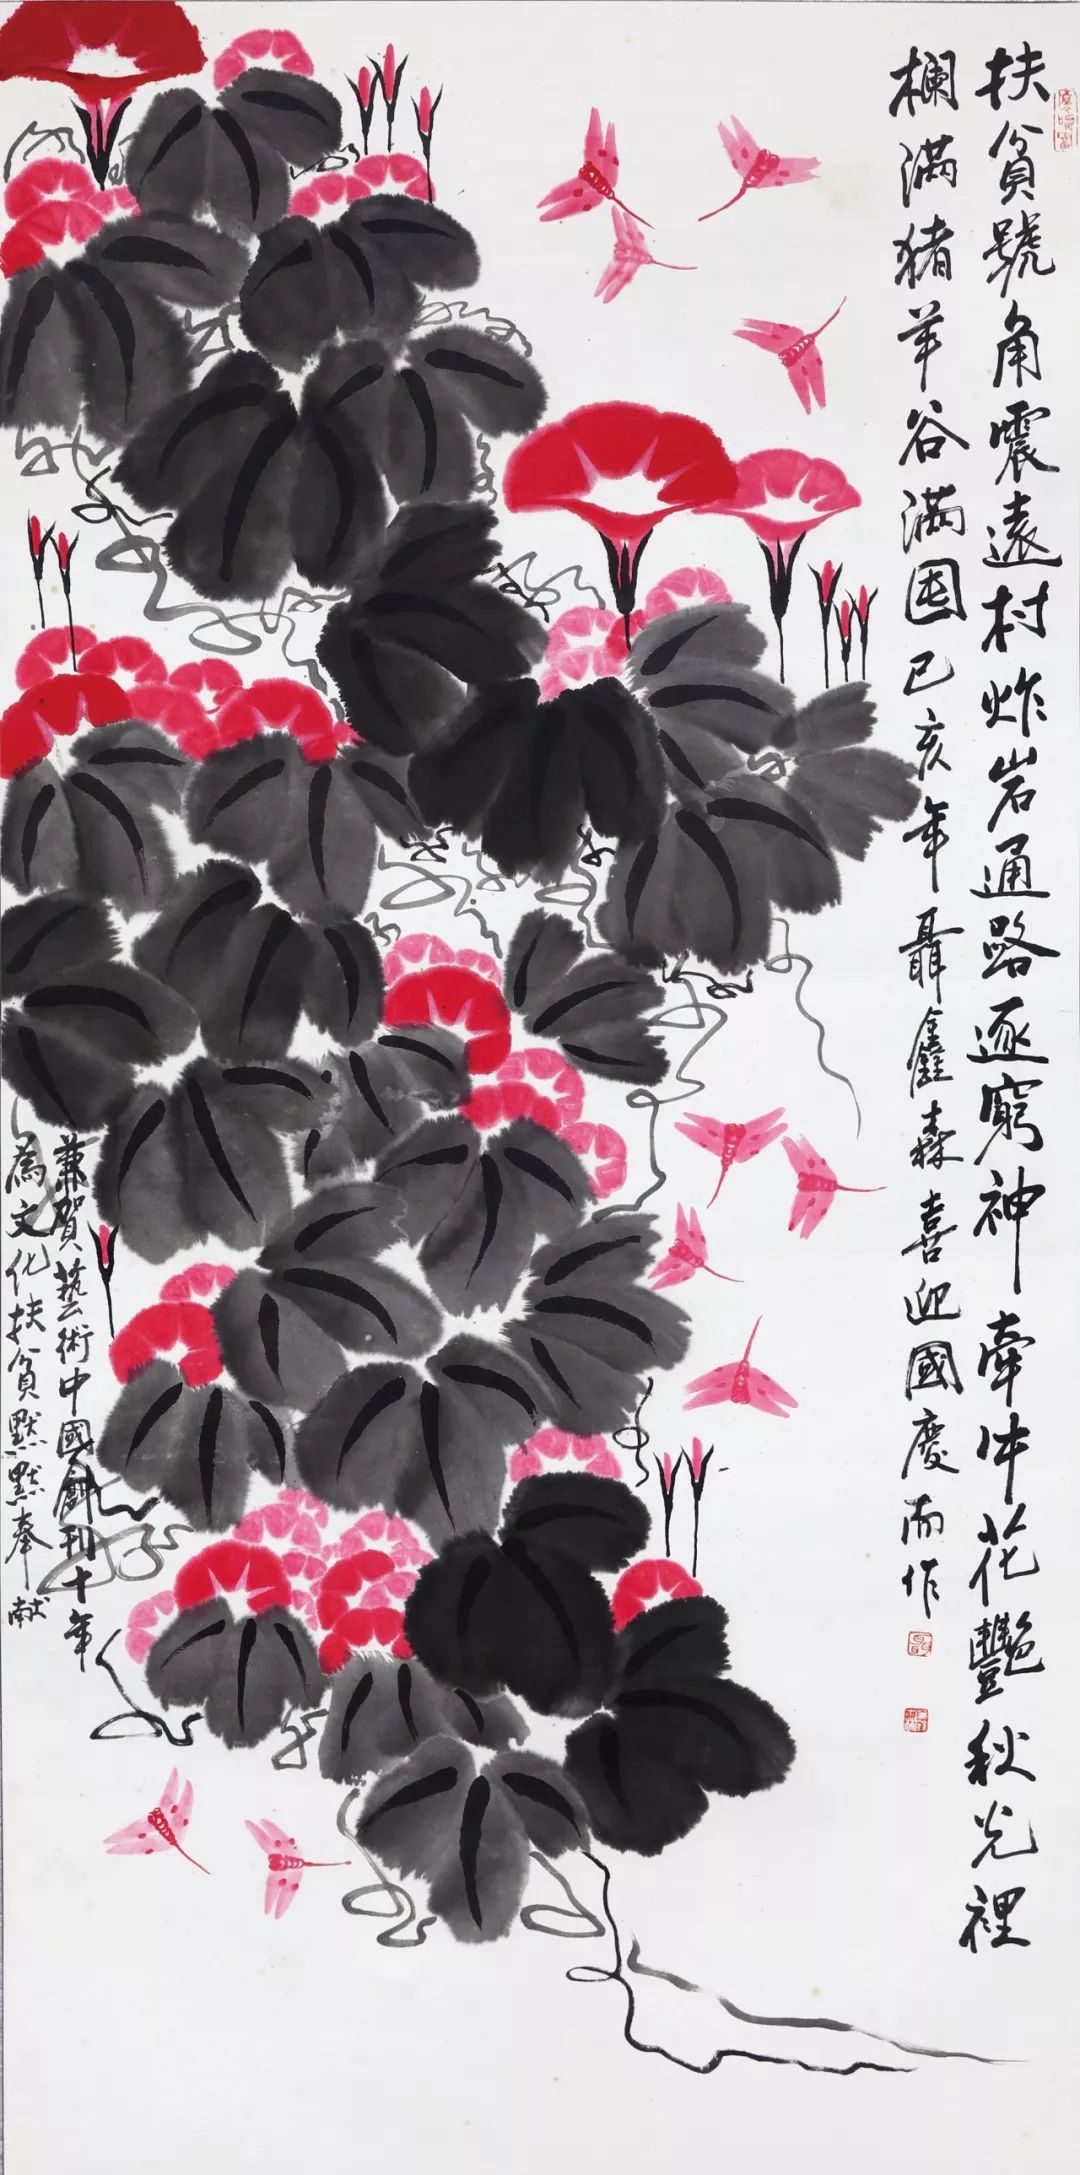 扶貧號角震遠村炸岩通路逐窮神牽牛花艷秋光裡
欄满猪羊谷满囤己亥年聶鑫森喜迎國慶而作
兼賀藝術中國創刊十年
為文化扶貧默默奉献